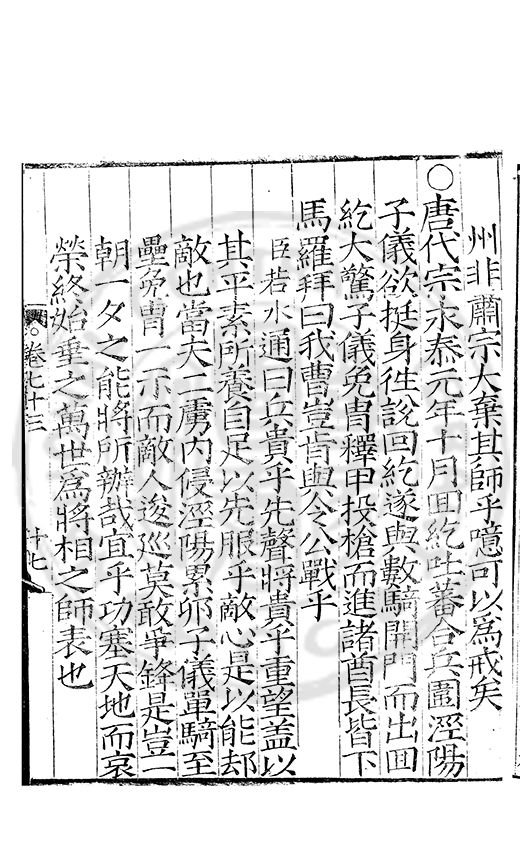 州非肅宗大棄其師乎噫可以爲戒矣
○唐代宗永泰元年十月回紇吐蕃合兵圍涇陽
子儀欲挺身徃說回紇遂與數騎開門而出回
紇大驚子儀免胄釋甲投槍而進諸酋長皆下
馬羅拜曰我曹豈肯與令公戰乎
臣若水通曰兵貴乎先聲將貴乎重望盖以
其平素所養自足以先服乎敵心是以能却
敵也當夫二虜內侵涇陽累卵子儀單騎至
壘免胄一示而敵人逡巡莫敢爭鋒是豈一
朝一夕之能將所辦哉宜乎功塞天地而哀
榮終始垂之萬世爲將相之師表也
卷七十三
十七